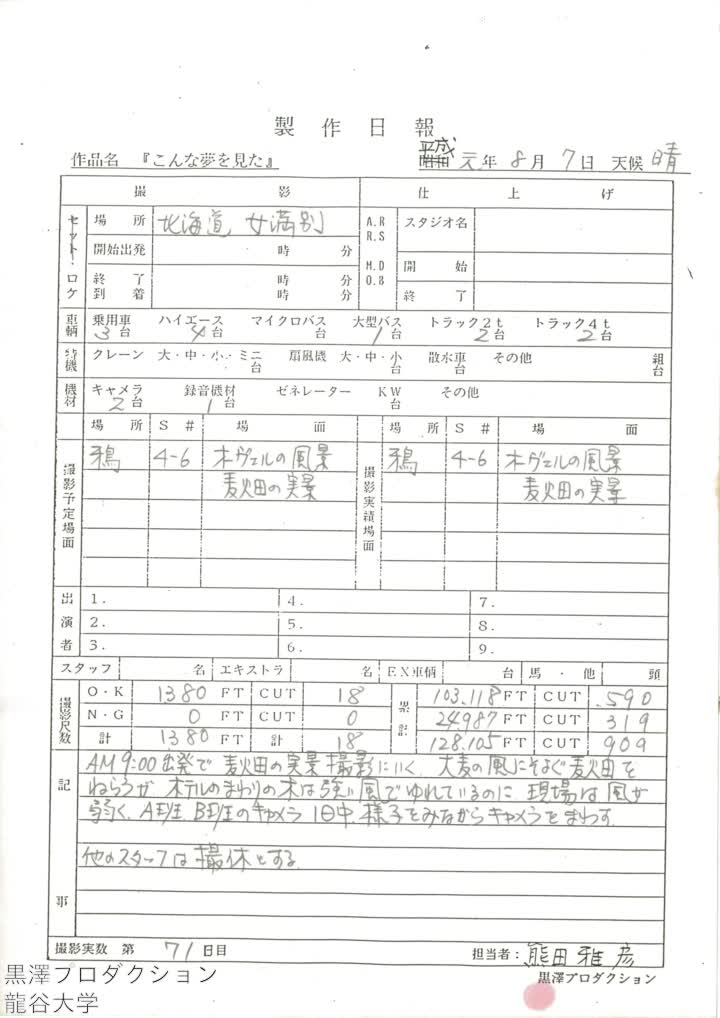 製作日報
作品名 『こんな夢を見た』 昭和 平成 元年 8月 7日 天候 晴
撮影 仕上げ
セット・ロケ 場所 北海道 女満別 A.R R.S スタジオ名
開始出発 時 分 M.D O.B 開始
終了 時 分 終了
到着 時 分
車輌 乗用車 3台 ハイエース 4台 マイクロバス 台 大型バス 1台 トラック2t 2台 トラック4t 2台
特機 クレーン 大・中・小・ミニ 台 扇風機 大・中・小 台 散水車 台 その他 組 台
機材 キャメラ 2台 録音機材 1台 ゼネレーター KW 台 その他
場所 S# 場面 場所 S# 場面
撮影予定場面 鴉 4-6 オヴェルの風景 撮影実績場面 鴉 4-6 オヴェルの風景
麦畑の実景 麦畑の実景
出演者 1. 4. 7.
2. 5. 8.
3. 6. 9.
スタッフ 名 エキストラ 名 EX車輌 台 馬・他 頭
撮影尺数 O・K 1380 FT CUT 18 累計 103.118 FT CUT 590
N・G 0 FT CUT 0 24.987 FT CUT 319
計 1380 FT 計 18 128.105 FT CUT 909
記事 AM9:00出発で麦畑の実景撮影にいく。大麦の風にそよぐ麦畑を
ねらうが ホテルのまわりの木は強い風でゆれているのに 現場は風が
弱く、A班、B班のキャメラ1日中、様子をみながらキャメラをまわす。
他のスタッフは撮休とする。
撮影実数 第 71日目 担当者: 熊田雅彦
黒澤プロダクション
黒澤プロダクション
龍谷大学